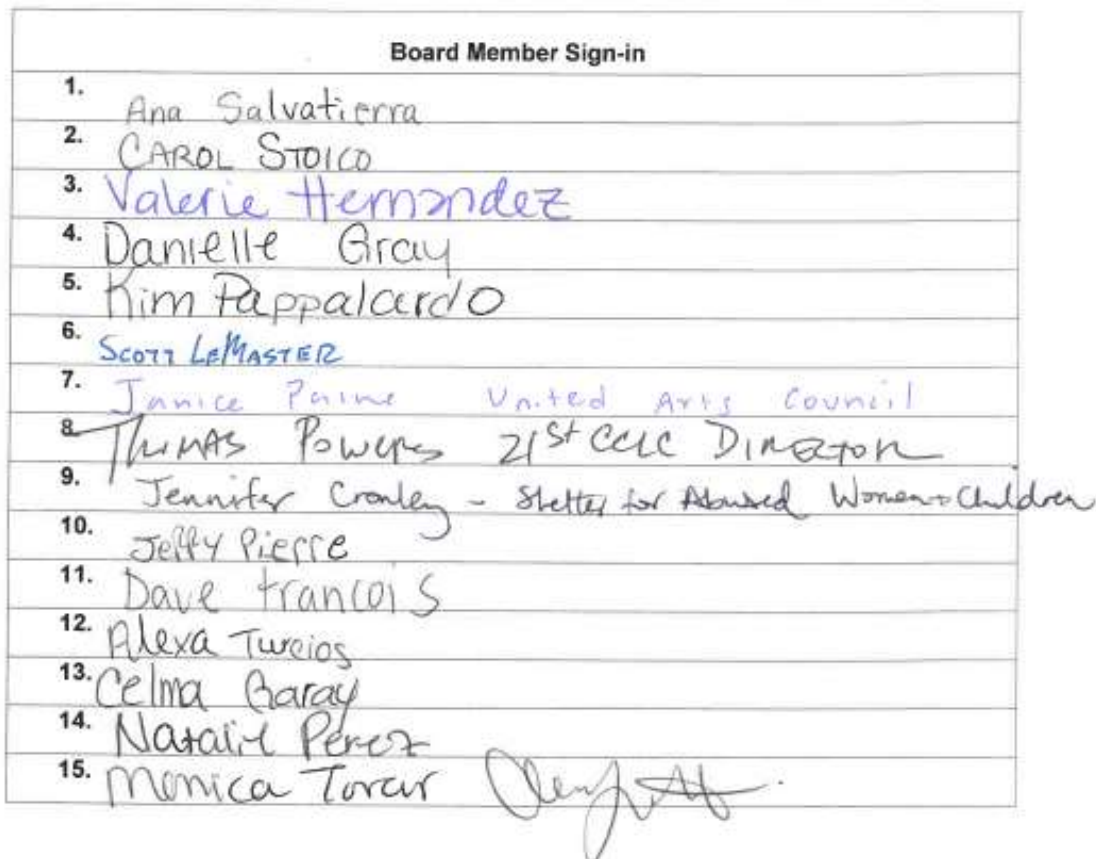 Board Member Sign-in
1. Ana Salvatierra
2. CAROL STOICO
3. Valerie Hernandez
4. Danielle Gray
5. Kim Pappalardo
6. SCOTT LEMASTER
7. Janice Paine United Arts Council
8. THOMAS POWERS 21st CCLC DIRECTOR
9. Jennifer Cronley - Shelter for Abused Women + Children
10. Jeffy Pierre
11. Dave Francois
12. Alexa Turcios
13. Celma Garay
14. Natalie Perez
15. Monica